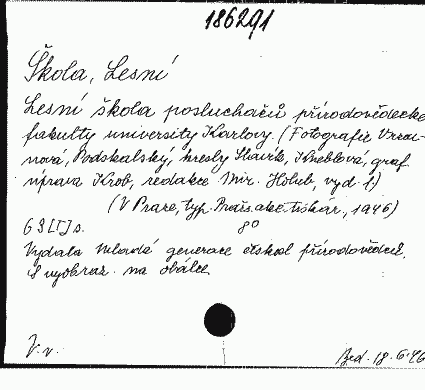 186291
Škola, Lesní
Lesní škola posluchačů přírodovědecké
fakulty university Karlovy. (Fotografie Vrza-
nová, Podskalský, kresby Slavík, Kneblová, graf.
úprava Krob, redakce Mir. Holub, vyd. 1.)
(V Praze, typ. Praž. akc. tiskár., 1946)
63 [I] s. 8°
Vydala Mladá generace českosl. přírodovědců.
S vyobraz. na obálce
V.v. 18.6.46